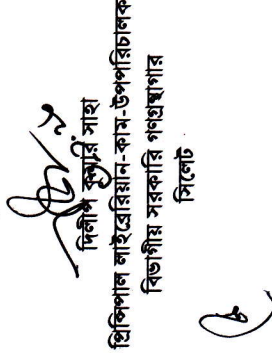 দিলীপ কুমার সাহা
প্রিন্সিপাল লাইব্রেরিয়ান-কাম-উপপরিচালক
বিভাগীয় সরকারি গণগ্রন্থাগার
সিলেট